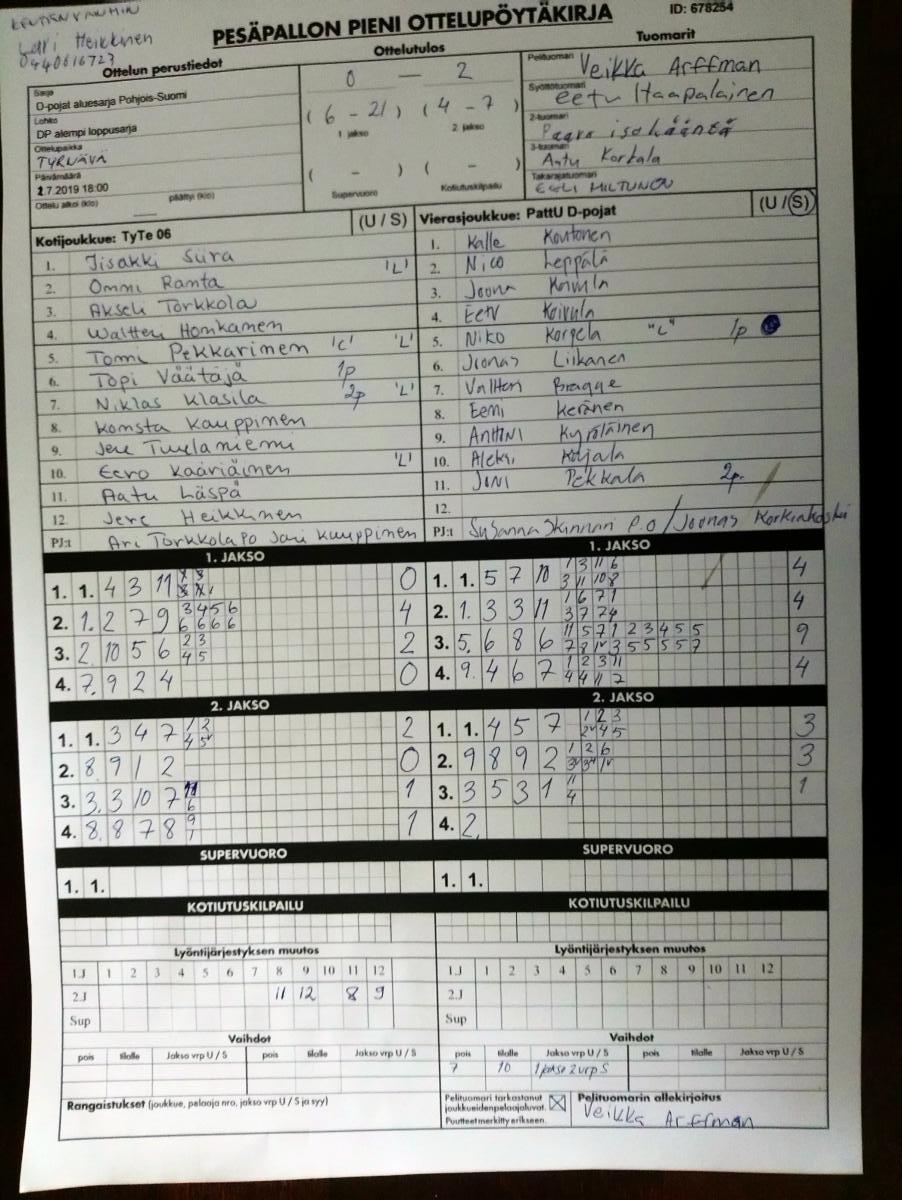 Heikkinen
0440616723
PESÄPALLON PIENI OTTELUPÖYTÄKIRJA
ID: 678254
Ottelun perustiedot
Ottelutulos
Tuomarit
Sarja
D-pojat aluesarja Pohjois-Suomi
Lohko
DP alempi loppusarja
Ottelupaikka
TYRNÄVÄ
Päivämäärä
2.7.2019 18:00
Ottelu alkoi (klo) päättyi (klo)
0 — 2
(6 - 21) (4 - 7)
1 jakso 2 jakso
( - ) ( - )
Supervuoro Kotiutuskilpailu
Pelituomari Veikka Arffman
Syöttötuomari Eetu Haapalainen
2-tuomari
3-tuomari Antu Korkala
Takarajatuomari EELI MILTUNEN
Kotijoukkue: TyTe 06 (U / S)
1. Iisakki Siira
2. Ommi Ranta 'L'
3. Akseli Torkkola
4. Waltteri Honkanen
5. Tomi Pekkarinen 'c' 'L'
6. Topi Väätäjä 1p
7. Niklas Klasila 2p 'L'
8. Komsta Kauppinen
9. Jere Tuulaniemi
10. Eero Kääriäinen 'L'
11. Aatu Läspä
12. Jere Heikkinen
PJ:t Ari Torkkola PO Jari Kauppinen
Vierasjoukkue: PattU D-pojat (U / S)
1. Kalle Koutonen
2. Nico Leppälä
3. Joona
4. Eetu Koivula
5. Niko Korpela "L" 1p
6. Joonas Liikanen
7. Valtteri Bragge
8. Eemi Keränen
9. Antti Kyröläinen
10. Aleksi
11. JONI Pekkala 2p.
12.
PJ:t Susanna P.O / Joonas Korkiakoski
1. JAKSO
1. 1. 4 3 11 0
2. 1. 2 7 9 3 4 5 6 4
6 6 6 6
3. 2 10 5 6 2 3 2
4 5
4. 7. 9 2 4 0
1. JAKSO
1. 1. 5 7 10 1 3 11 6 4
3 11 10 8
2. 1. 3 3 11 1 6 7 1 4
3 7 2 4
3. 5. 6 8 6 11 5 7 1 2 3 4 5 5 9
4. 9. 4 6 7 1 2 3 11 4
4 4 11 7
2. JAKSO
1. 1. 3 4 7 1 2 2
2. 8 9 1 2 0
3. 3. 3 10 7 11 1
6
4. 8. 8 7 8 9 1
1
2. JAKSO
1. 1. 4 5 7 1 2 3 3
2. 9 8 9 2 1 2 6 3
3. 3 5 3 1 11 1
4
4. 2.
SUPERVUORO
1. 1.
SUPERVUORO
1. 1.
KOTIUTUSKILPAILU
KOTIUTUSKILPAILU
Lyöntijärjestyksen muutos
1.J 1 2 3 4 5 6 7 8 9 10 11 12
2.J 11 12 8 9
Sup
Lyöntijärjestyksen muutos
1.J 1 2 3 4 5 6 7 8 9 10 11 12
2.J
Sup
Vaihdot
pois tilalle Jakso vrp U / S pois tilalle Jakso vrp U / S
Vaihdot
pois tilalle Jakso vrp U / S pois tilalle Jakso vrp U / S
7 10 1 jakso 2 vrp S
Rangaistukset (joukkue, pelaaja nro, jakso vrp U / S ja syy)
Pelituomari tarkastanut
joukkueiden pelaajaluvat.
Puutteet merkitty erikseen.
Pelituomarin allekirjoitus
Veikka Arffman